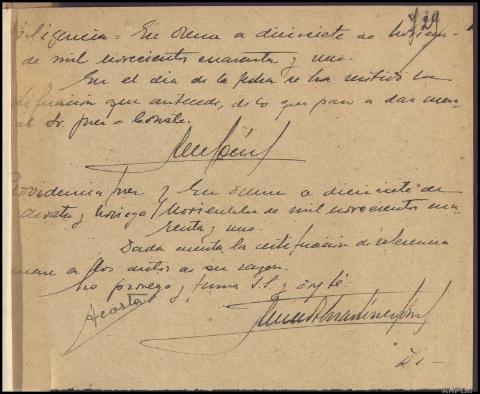 724
Diligencia = En Orense a diecisiete de noviem-
de mil novecientos cuarenta y uno.
En el día de la fecha se ha recibido la
que antecede, de lo que paso a dar cuen-
al Sr. Juez = Conste.
Providencia Juez En Orense a diecisiete de
Acosta y Noriega Noviembre de mil novecientos cua-
renta y uno.
Dada cuenta la certificación de referencia
a los autos de su razón.
Lo proveyó y firma S.S. y doy fé.
Acosta
Di-